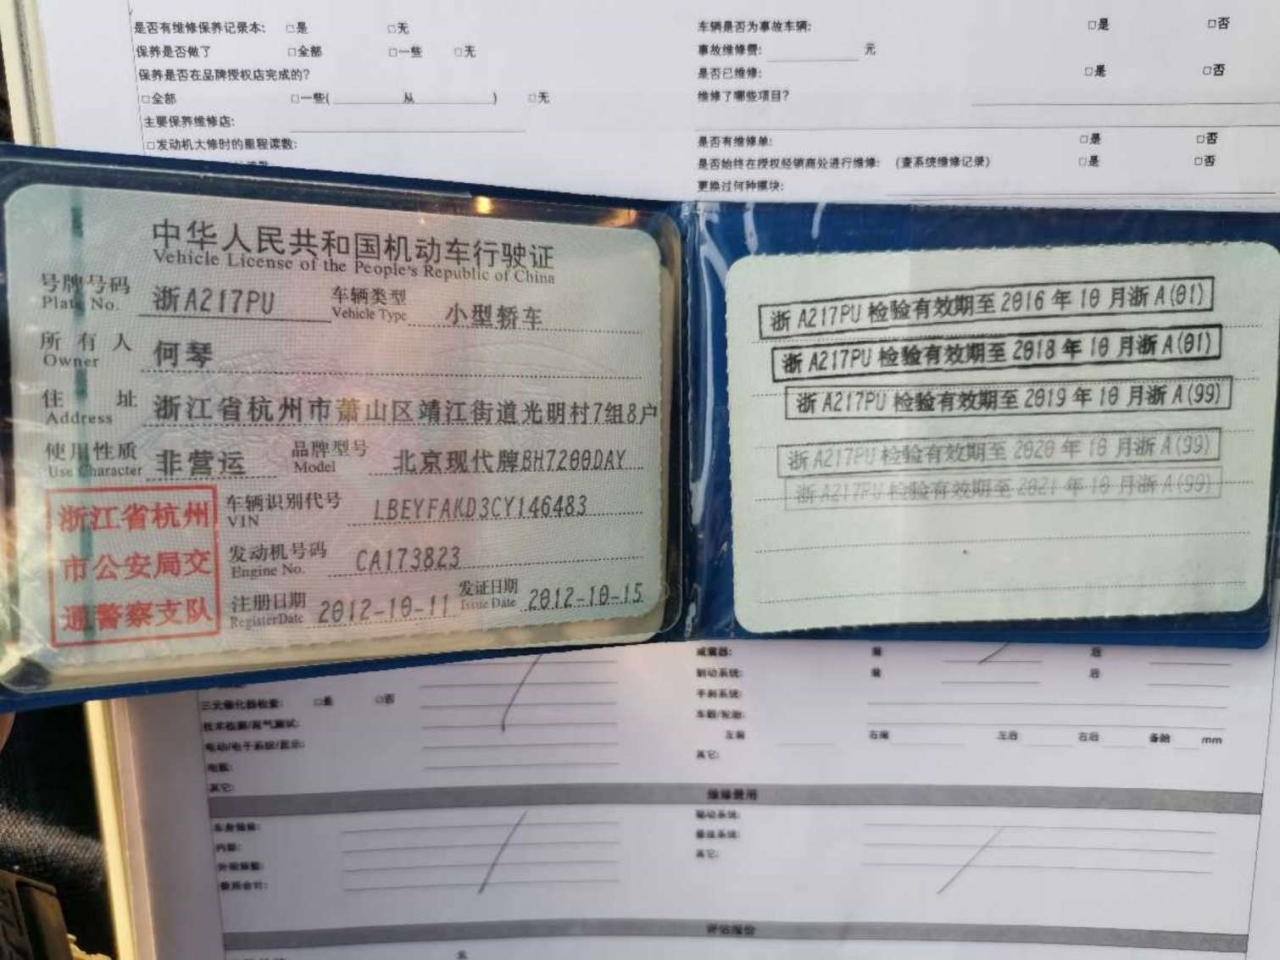 是否有维修保养记录本: □是 □无
保养是否做了 □全部 □一些 □无
保养是否在品牌授权店完成的?
□全部 □一些( 从 ) □无
主要保养维修店:
□发动机大修时的里程读数:
车辆是否为事故车辆: □是 □否
事故维修费: 元
是否已维修: □是 □否
维修了哪些项目?
是否有维修单: □是 □否
是否始终在授权经销商处进行维修: (查系统维修记录) □是 □否
更换过何种模块:
中华人民共和国机动车行驶证
Vehicle License of the People's Republic of China
号牌号码 浙A217PU 车辆类型 小型轿车
Plate No. Vehicle Type
所有人 何琴
Owner
住址 浙江省杭州市萧山区靖江街道光明村7组8户
Address
使用性质 非营运 品牌型号 北京现代牌BH7200DAY
Use Character Model
浙江省杭州
市公安局交
通警察支队
车辆识别代号 LBEYFAKD3CY146483
VIN
发动机号码 CA173823
Engine No.
注册日期 2012-10-11 发证日期 2012-10-15
Register Date Issue Date
浙A217PU检验有效期至2016年10月浙A(01)
浙A217PU检验有效期至2018年10月浙A(01)
浙A217PU检验有效期至2019年10月浙A(99)
浙A217PU检验有效期至2020年10月浙A(99)
浙A217PU检验有效期至2021年10月浙A(99)
三元催化器检查: □是 □否
技术检测/尾气测试:
电动/电子系统/显示:
电瓶:
其它:
减震器: 前 后
制动系统: 前 后
手刹系统:
车辋/轮胎:
左前 右前 左后 右后 备胎 mm
其它:
维修费用
车身维修:
内部:
外观维修:
费用合计:
驱动系统:
悬挂系统:
其它:
评估报价